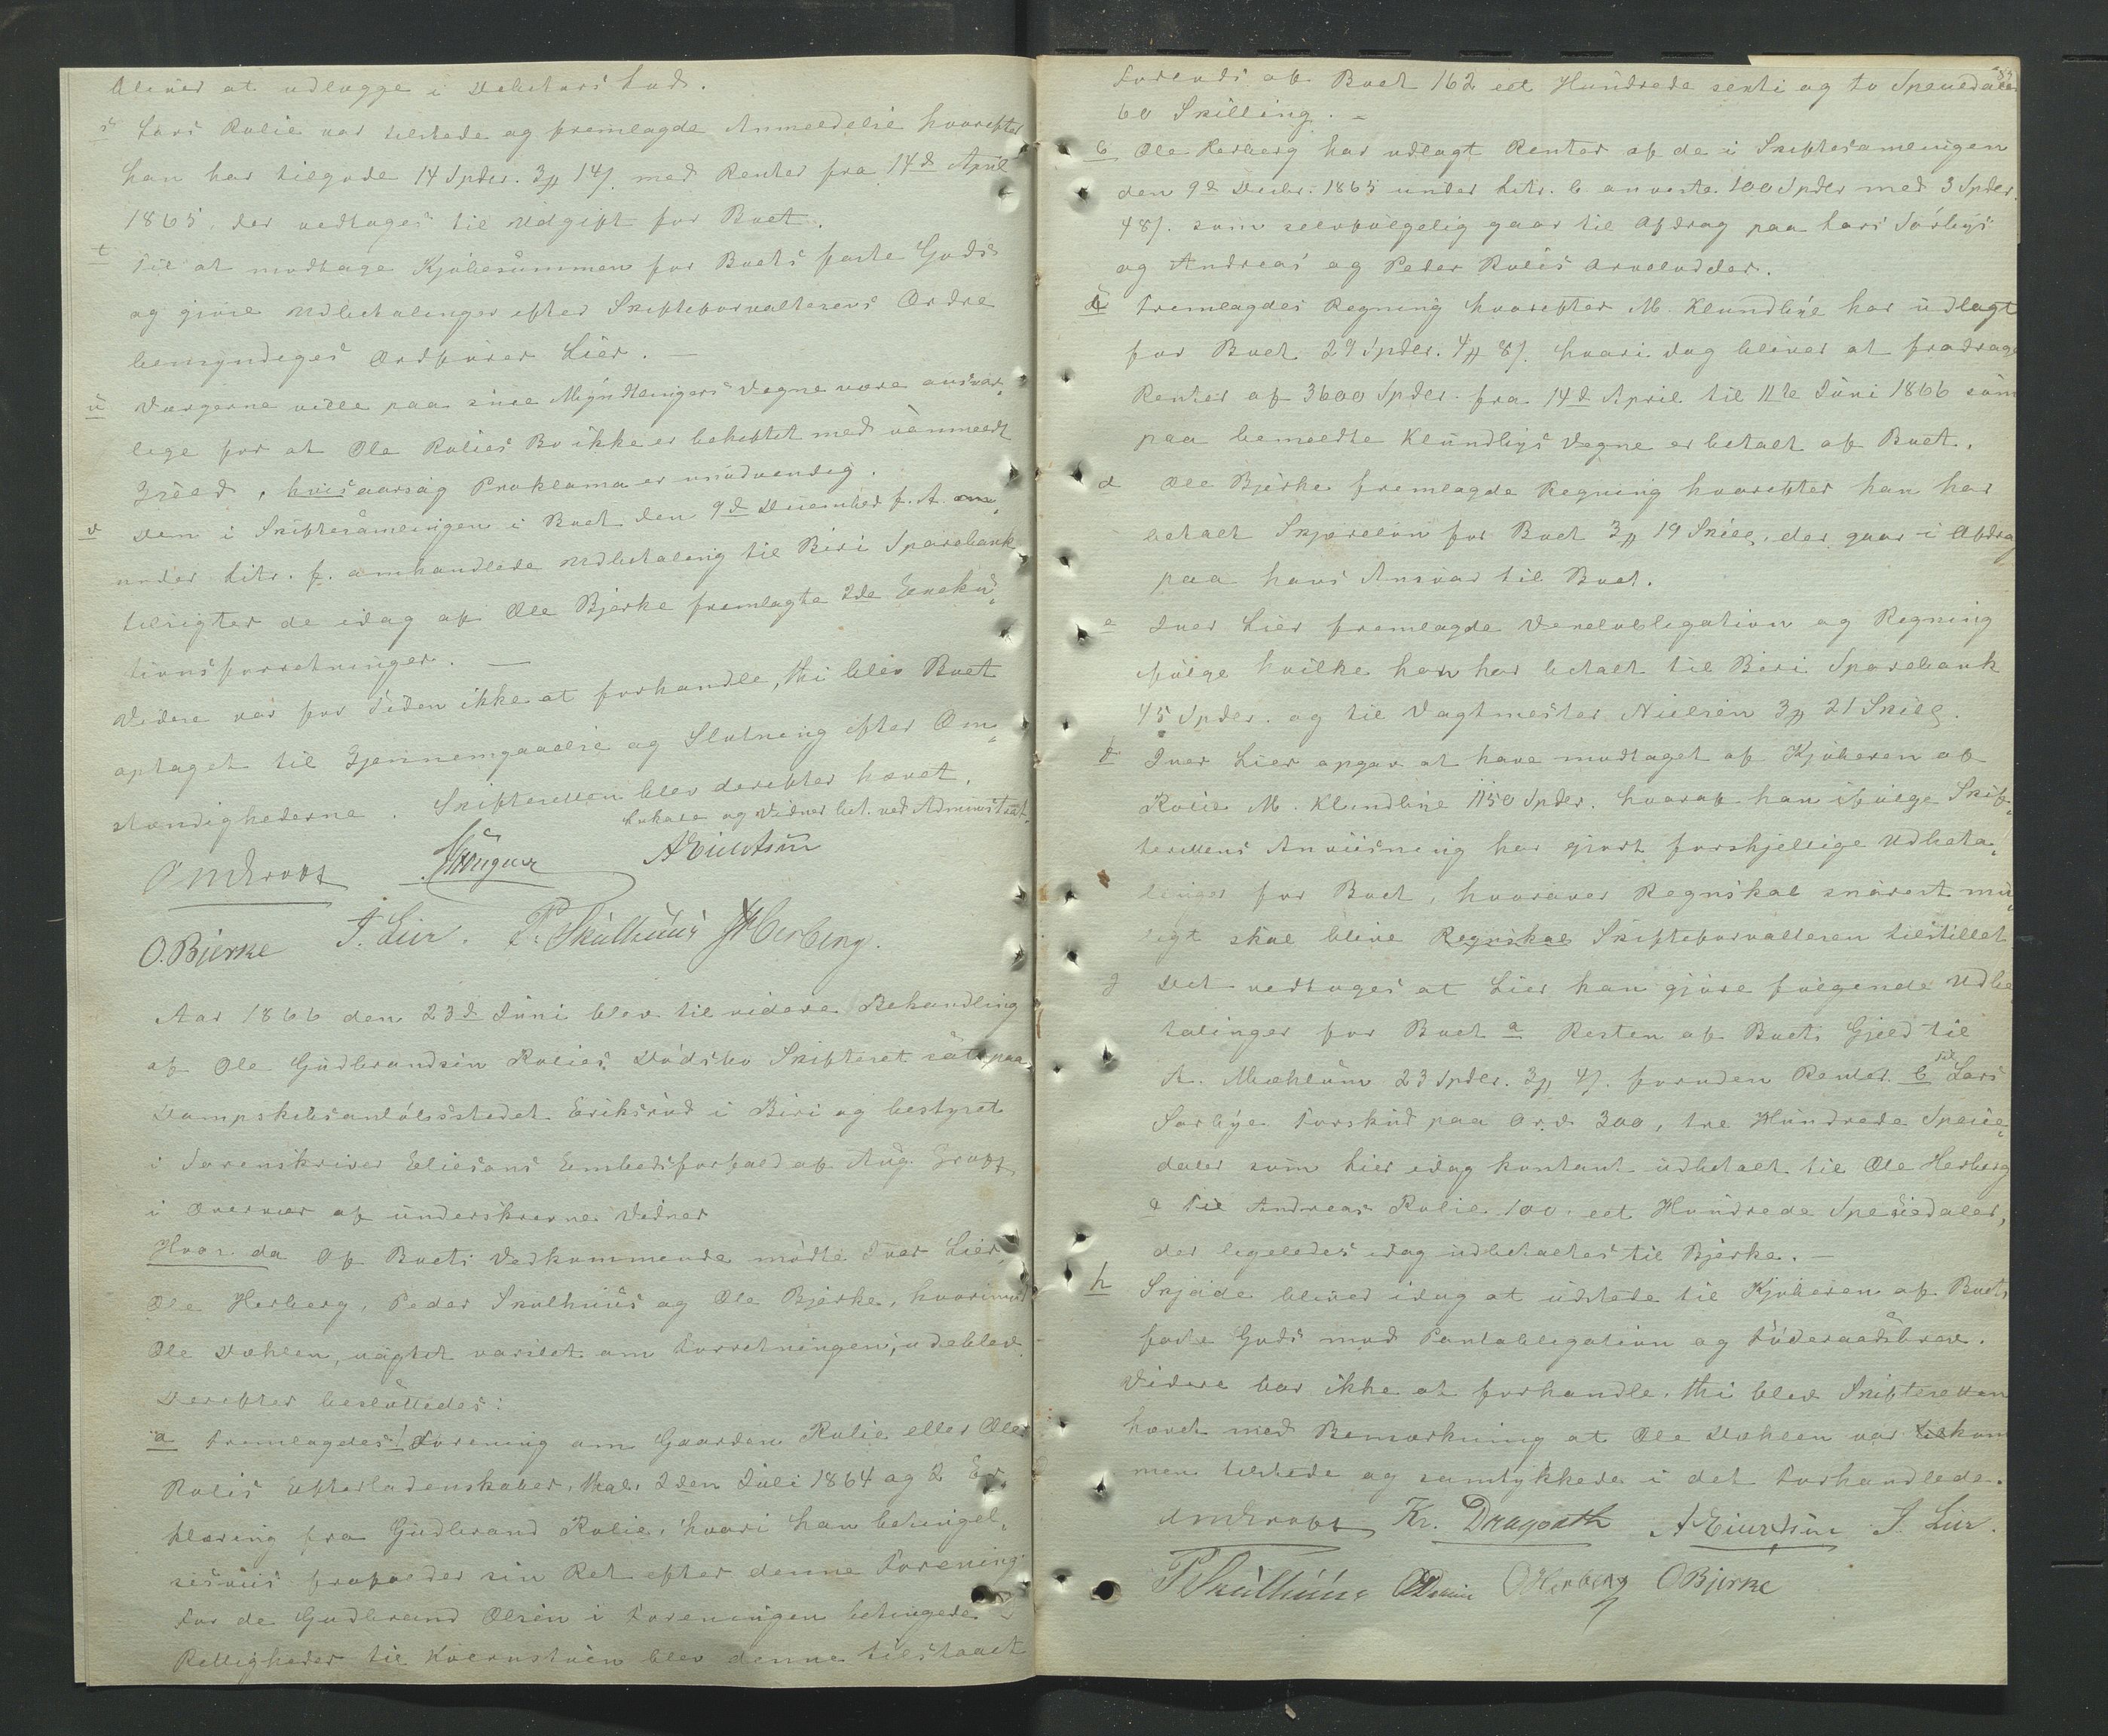 bliver at udlægge i Debitors Lod.
s Lars Rolie var tilstede og fremlagde Anmeldelse hvorefter
han har tilgode 14 Spdlr. 3 # 14 s. med Renter fra 14de April
1865, der vedtoges til Udgift for Boet.
t Til at modtage Kjøbesummen for Boets faste Gods
og gjøre Udbetalinger efter Skifteforvalterens Ordre
bemyndiges Ordfører Lier. —
u Værgerne ville paa sine Myndlingers Vegne være ansvar-
lige for at Ole Rolies Bo ikke er beheftet med uanmeldt
Gjeld, hvisaarsag Proklama er unødvendig.
v Den i Skiftesamlingen i Boet den 9de December f. A.
under Litr. f. omhandlede Udbetaling til Biri Sparebank
tilsigter de idag af Ole Bjerke fremlagte 2de Exeku-
tionsforretninger. —
Videre var for Tiden ikke at forhandle, thi blev Boet
optaget til Gjennemgaaelse og Slutning efter Om-
stændighederne. Skifteretten blev derefter hævet.
Lokale og Vidner bet. ved Administrat.
O. Bjerke J. Lier. P. Skulhuus Herberg.
Aar 1866 den 23de Juni blev til videre Behandling
af Ole Gudbrandsen Rolies Dødsbo Skifteret sat paa
Dampskibsanløbsstedet Eriksrud i Biri og bestyret
i Sorenskriver Eliesons Embedsforfald af Aug.
i Overvær af underskrevne Vidner
Hvor da af Boets Vedkommende mødte Iver Lier,
Ole Herberg, Peder Skulhuus og Ole Bjerke, hvorimod
Ole Dæhlen, uagtet varslet om Forretningen, udeblev.
Derefter besluttedes:
a Fremlagdes Forening om Gaarden Rolie eller Ole
Rolis Efterladenskaber, 2den Juli 1864 og 2 Er-
klæring fra Gudbrand Rolie, hvori han betingel-
sesviis frafalder sin Ret efter denne Forening
For de Gudbrand Olsen i Foreningen betingede
Rettigheder til Kvernstuen blev denne tilstaaet
forlods af Boet 162 eet Hundrede sexti og to Speciedaler
60 Skilling. —
b Ole Herberg har udlagt Renter af de i Skiftesamlingen
den 9de Decbr. 1865 under Litr. b anviste 100 Spdlr med 3 Spdlr.
48 s. som selvfølgelig gaar til Afdrag paa Lars Sørbys
og Andreas og Peder Rolis Arvelodder.
c Fremlagdes Regning hvorefter M. Klundbye har udlagt
for Boet 29 Spdlr. 4 # 8 s. hvori dog bliver at fradrage
Renter af 3600 Spdlr. fra 14de April til 11te Juni 1866 som
paa bemeldte Klundbys Vegne er betalt af Boet.
d Ole Bjerke fremlagde Regning hvorefter han har
betalt for Boet 3 # 19 Skill, der gaar i Afdrag
paa hans Ansvar til Boet.
e Iver Lier fremlagde Vexelobligation og Regning
ifølge hvilke han har betalt til Biri Sparebank
45 Spdlr. og til Vagtmester Nielsen 3 # 21 Skill.
f Iver Lier opgav at have modtaget af Kjøberen af
Rolie M. Klundbye 1150 Spdlr. hvoraf han ifølge Skif-
terettens Anviisning har gjort forskjellige Udbeta-
linger for Boet, hvorover Regnskab snarest mu-
ligt skal blive Regnskab Skifteforvalteren tilstillet
g Det vedtoges at Lier kan gjøre følgende Udbe-
talinger for Boet a Resten af Boets Gjeld til
A. Mæhlum 23 Spdlr. 3 # 4 s. foruden Renter. b til Lars
Sørbye Forskud paa Arv 300, tre Hundrede Specie-
daler som Lier idag kontant udbetalt til Ole Herberg
c Til Andreas Rolie 100, eet Hundrede Speciedaler,
der ligeledes idag udbetaltes til Bjerke. —
h Skjøde bliver idag at udstede til Kjøberen af Boets
faste Gods mod Pantobligation og Føderaadsbrev.
Videre var ikke at forhandle, thi blev Skifteretten
hævet med Bemærkning at Ole Dæhlen var kom-
men tilstede og samtykkede i det Forhandlede.
Kr. Dragvath J. Lier.
P. Skulhuus O. Herberg O Bjerke